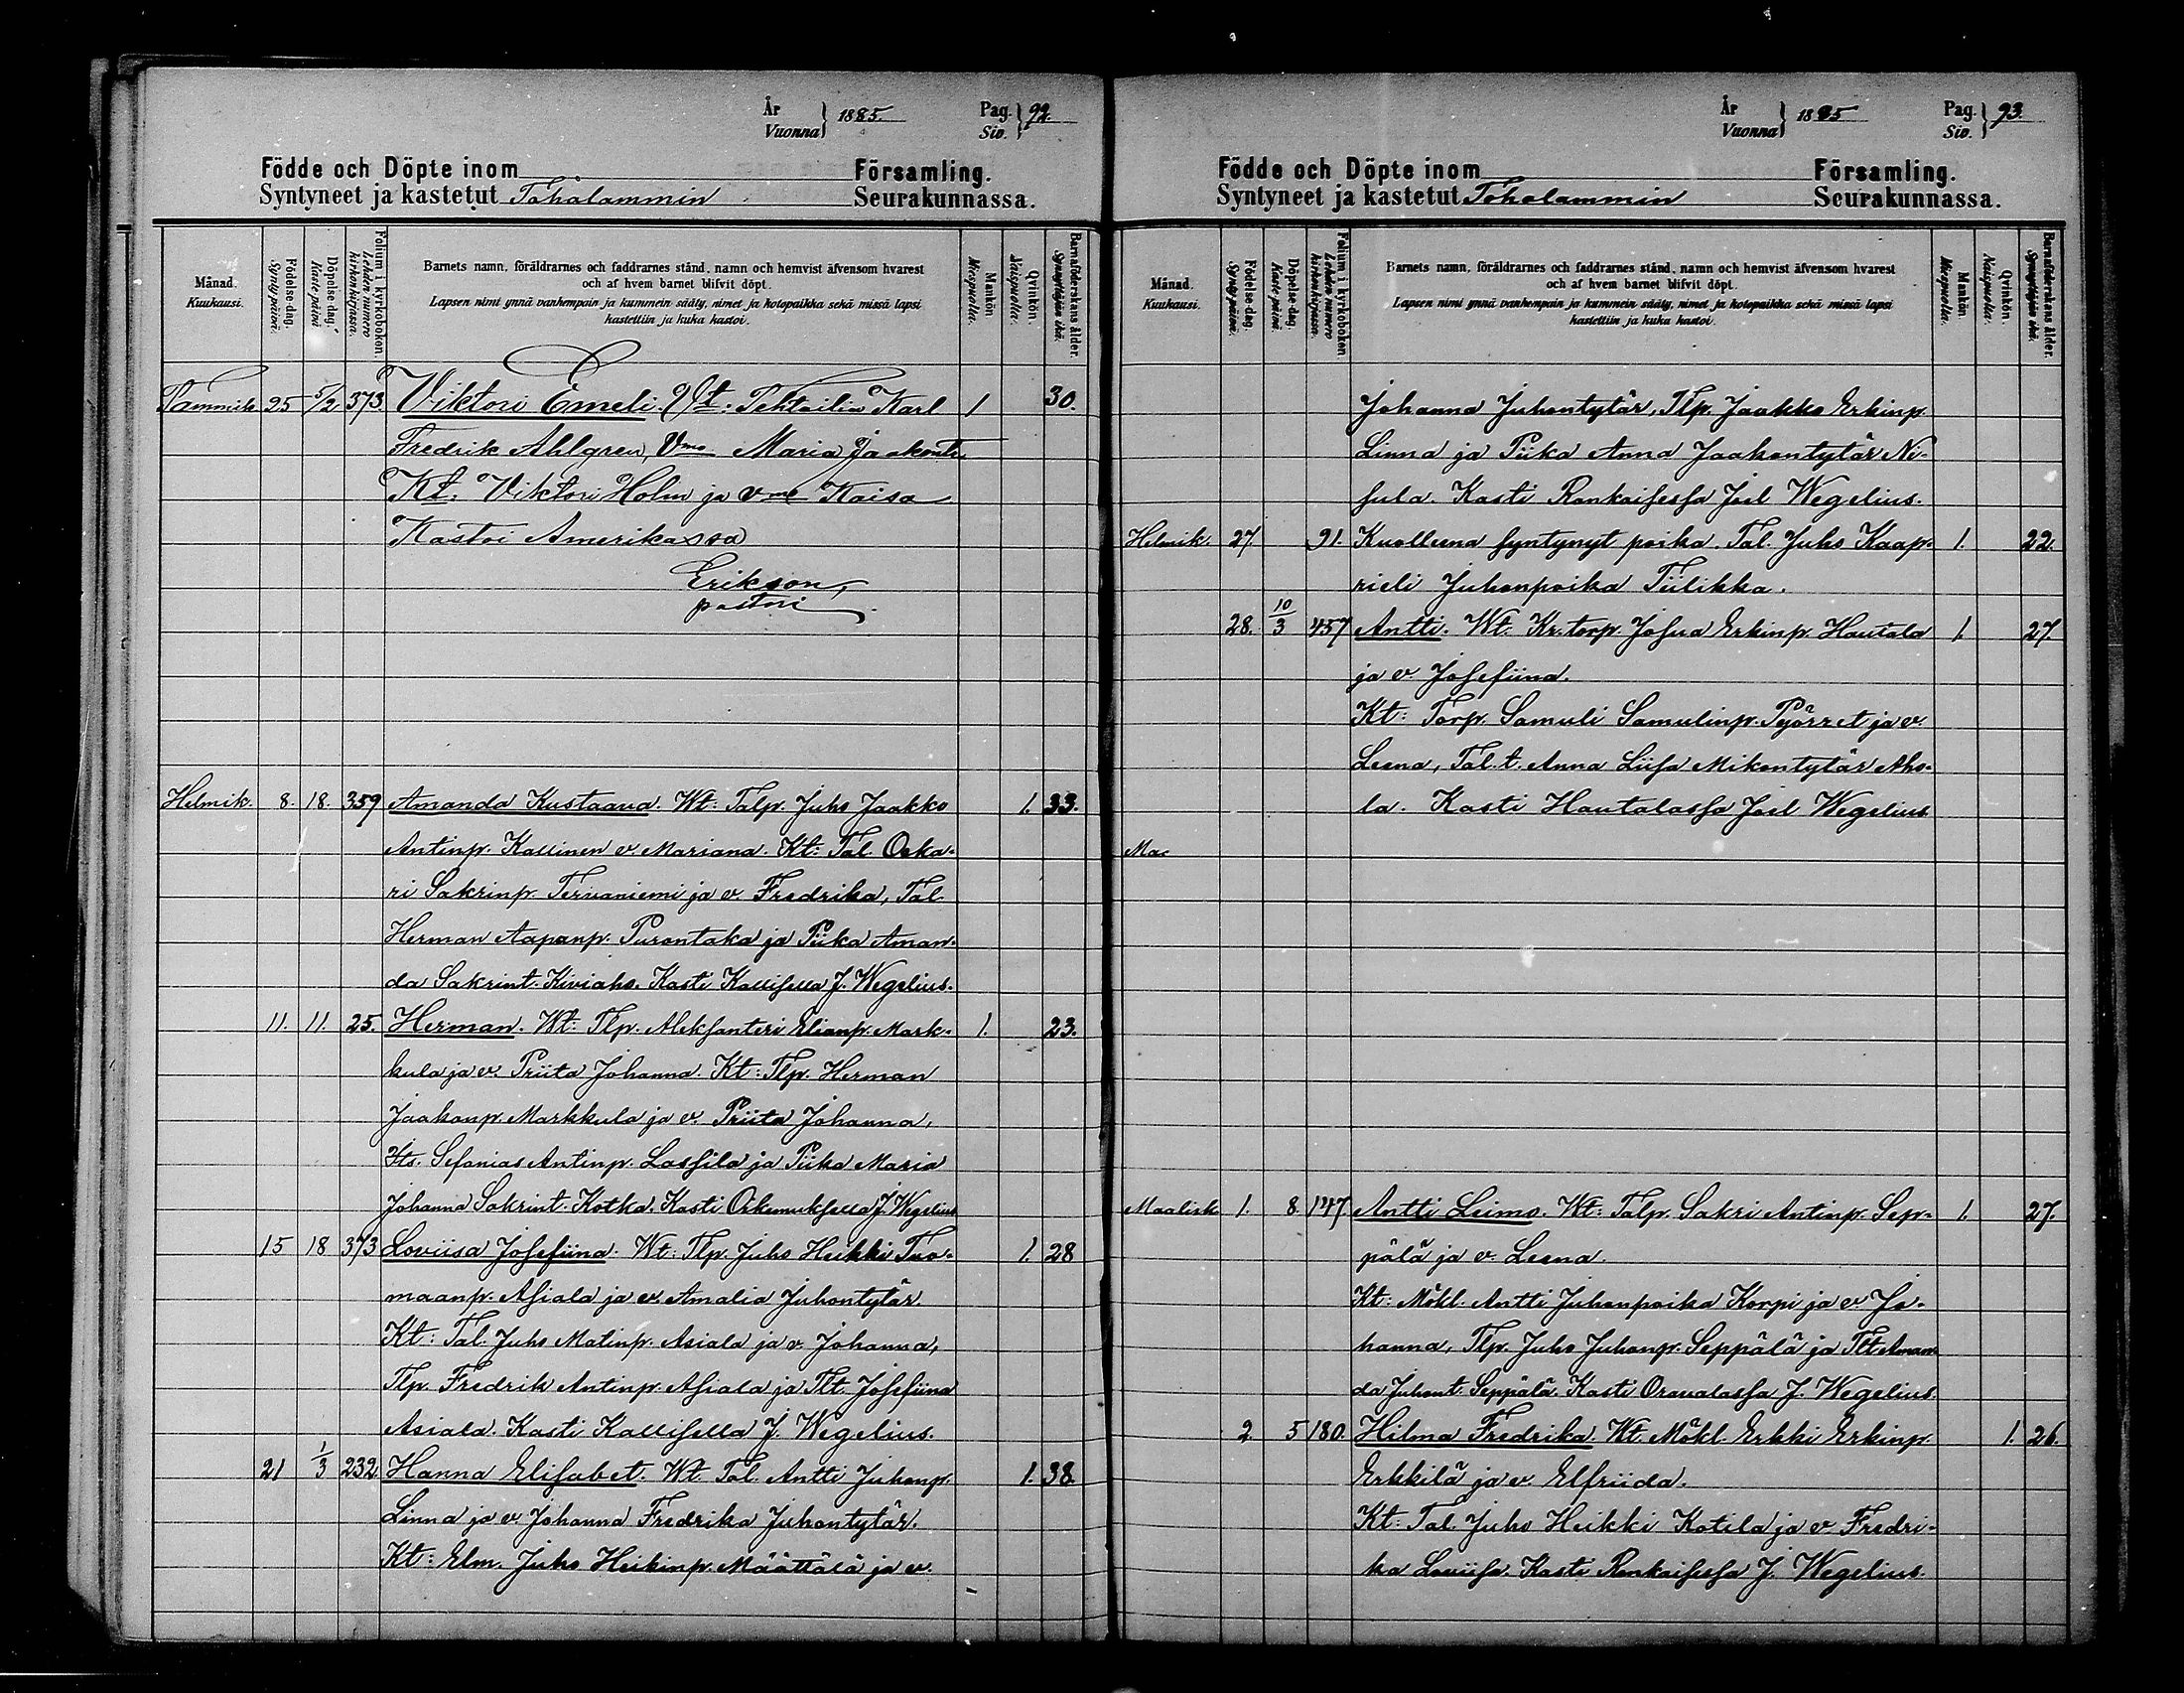 År
Vuonna } 1885.
Pag.
Siv. } 92.
Födde och Döpte inom Församling.
Syntyneet ja kastetut Toholammin Seurakunnassa.
Månad. Kuukausi.
Födelse-dag. Synty päivä.
Döpelse-dag. Kaste päivä
Folium i kyrkoboken. Lehden numero kirkonkirjassa.
Barnets namn, föräldrarnes och faddrarnes stånd, namn och hemvist äfvensom hvarest
och af hvem barnet blifvit döpt.
Lapsen nimi ynnä vanhempain ja kummein sääty, nimet ja kotopaikka sekä missä lapsi
kastettiin ja kuka kastoi.
Mankön Miespuolia.
Qvinkön. Naispuolia.
Barnaföderskans ålder. Synnyttäjän ikä.
Tammik. 25 5/2 373. Viktori Emeli. Vt: Tehtailia Karl 1 30.
Fredrik Ahlgren, Vmo Maria Jaakontr.
Kt. Viktori Holm ja vmo Kaisa
Kastoi Amerikassa
Erikson,
pastori
Helmik. 8. 18. 359 Amanda Kustaava. Wt: Talp. Juho Jaakko 1. 33.
Antinp. Kallinen v. Mariana. Kt: Tal. Oska-
ri Sakrinp. Tervaniemi ja v. Fredrika, Tal
Herman Aapanp. Purontaka ja Piika Aman-
da Sakrint. Kiviaho. Kasti Kallisella J. Wegelius.
11. 11. 25. Herman. Wt: Tlp. Aleksanteri Elianp. Mark- 1. 23.
kula ja v. Priita Johanna. Kt: Tlp. Herman
Jaakonp. Markkula ja v. Priita Johanna,
Its. Sefanias Antinp. Lassila ja Piika Maria
Johanna Sakrint. Kotka. Kasti Oikemuksella J. Wegelius
15 18 373 Loviisa Josefiina. Wt: Tlp. Juho Heikki Tuo- 1. 28
maanp. Asiala ja v. Amalia Juhontytär.
Kt: Tal. Juho Matinp. Asiala ja v. Johanna,
Tlp. Fredrik Antinp. Asiala ja Tlt. Josefiina
Asiala. Kasti Kallisella J. Wegelius.
21 1/3 232. Hanna Elisabet. Wt. Tal. Antti Juhonp. 1. 38.
Linna ja v. Johanna Fredrika Juhontytär.
Kt: Elm. Juho Heikinp. Määttälä ja v.
År
Vuonna } 1885
Pag.
Siv. } 93.
Födde och Döpte inom Församling.
Syntyneet ja kastetut Toholammin Seurakunnassa.
Månad. Kuukausi.
Födelse-dag. Synty päivä.
Döpelse-dag Kaste päivä.
Folium i kyrkoboken Lehden numero kirkonkirjassa.
Barnets namn, föräldrarnes och faddrarnes stånd, namn och hemvist äfvensom hvarest
och af hvem barnet blifvit döpt.
Lapsen nimi ynnä vanhempain ja kummein sääty, nimet ja kotopaikka sekä missä lapsi
kastettiin ja kuka kastoi.
Mankön. Miespuolia.
Qvinkön. Naispuolia.
Barnaföderskans ålder. Synnyttäjän ikä.
Johanna Juhontytär, Tlp. Jaakko Erkinp.
Linna ja Piika Anna Jaakontytär Ni-
sula. Kasti Rankaisessa Joel Wegelius.
Helmik. 27. 91. Kuolleena syntynyt poika. Tal. Juho Kaap- 1. 22.
rieli Juhonpoika Tiilikka.
28. 10/3 457 Antti. Wt. Kr. torp. Josua Erkinp. Hautala 1. 27.
ja v. Josefiina.
Kt: Torp. Samuli Samulinp. Pyörret ja v.
Leena, Tal. t. Anna Liisa Mikontytär Aho-
la. Kasti Hautalassa Joel Wegelius
Ma
Maalisk 1. 8. 147. Antti Leimo. Wt: Talp. Sakri Antinp. Sep- 1. 27.
pälä ja v. Leena.
Kt: Mökl. Antti Juhonpoika Korpi ja v. Jo-
hanna, Tlp. Juho Juhonp. Seppälä ja Tlt. Aman-
da Juhont. Seppälä. Kasti Oravalassa J. Wegelius.
2. 5 180. Hilma Fredrika. Wt. Mökl. Erkki Erkinp. 1. 26.
Erkkilä ja v. Elfriida.
Kt: Tal. Juho Heikki Kotila ja v. Fredri-
ka Loviisa. Kasti Rankaisessa J. Wegelius.